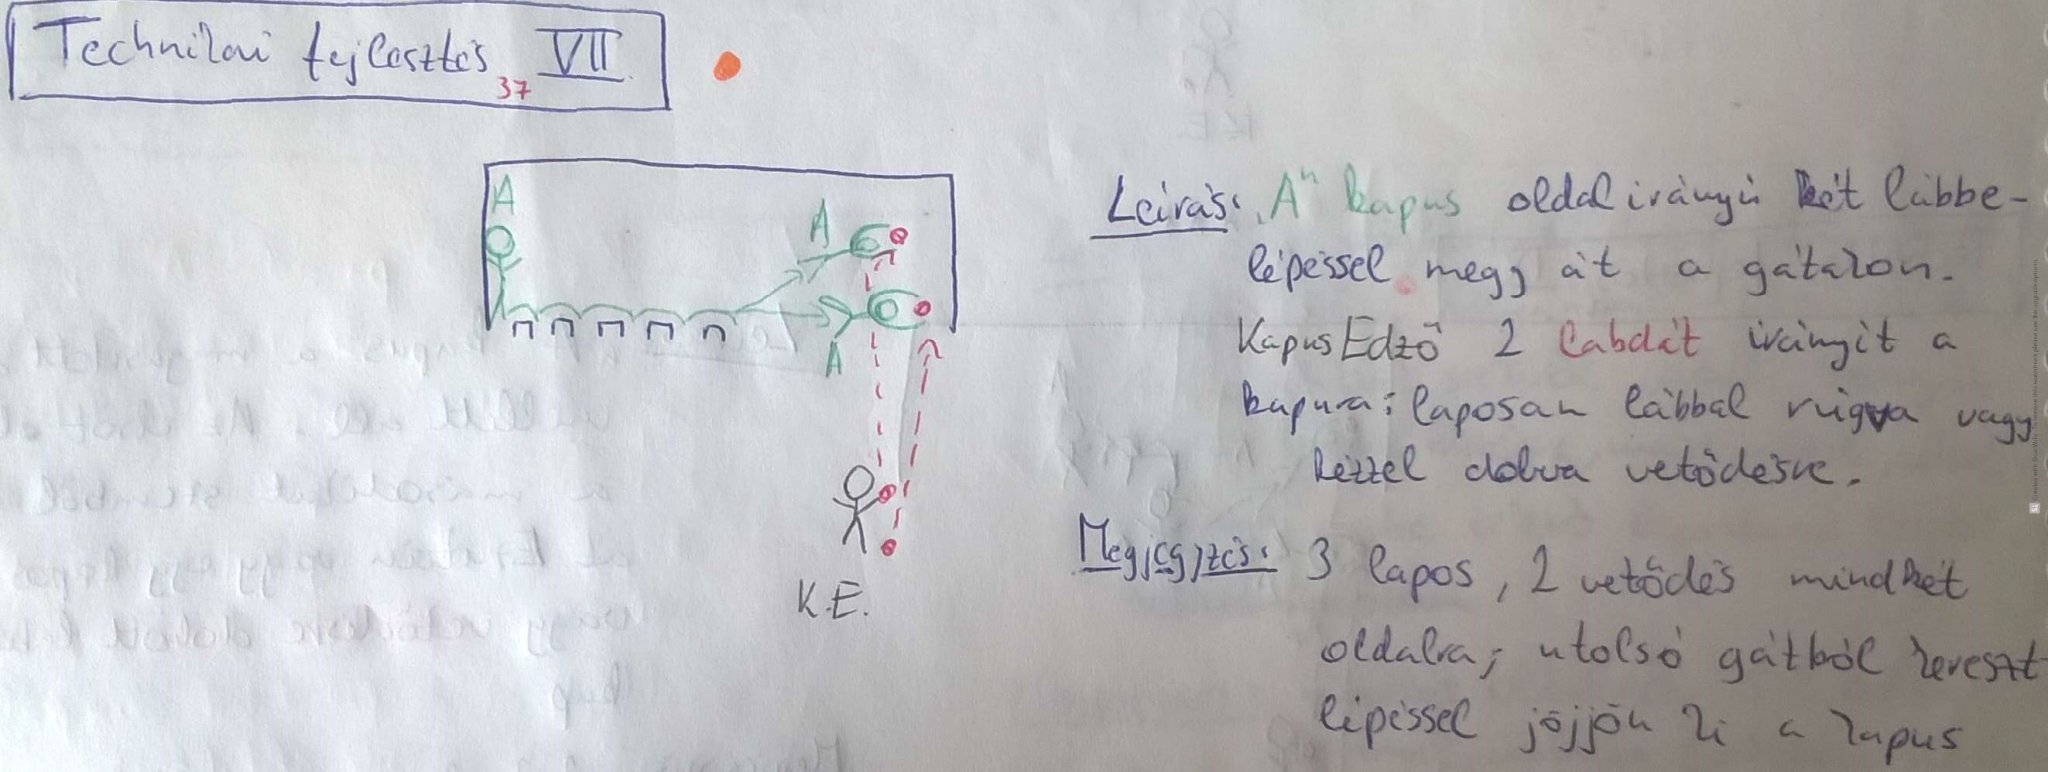 Technikai fejlesztés VII.
37
A
A
A
K.E.
Leírás: „A" kapus oldal irányú két lábbe-
lépéssel megy át a gátakon.
Kapus Edző 2 labdát irányít a
kapura: laposan lábbal rúgva vagy
kézzel dobva vetődésre.
Megjegyzés: 3 lapos, 2 vetődés mindkét
oldalra; utolsó gátból kereszt
lépéssel jöjjön ki a kapus